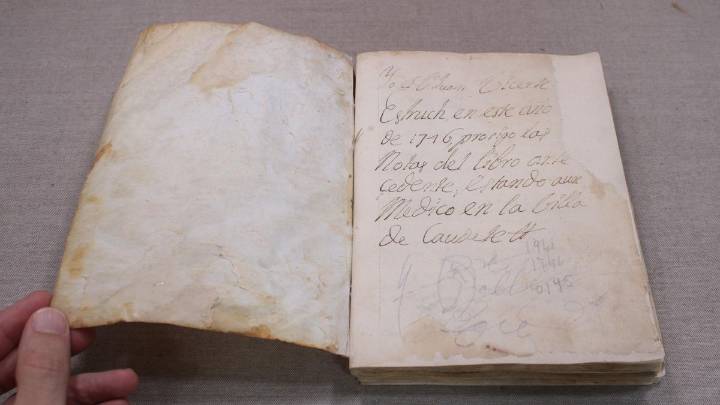 Yo Dn Juan Vicente
Estruch en este año
de 1746, prosigo las
Notas del libro ante
cedente, estando aun
Medico en la Villa
de Caudete
1941
1746
0195